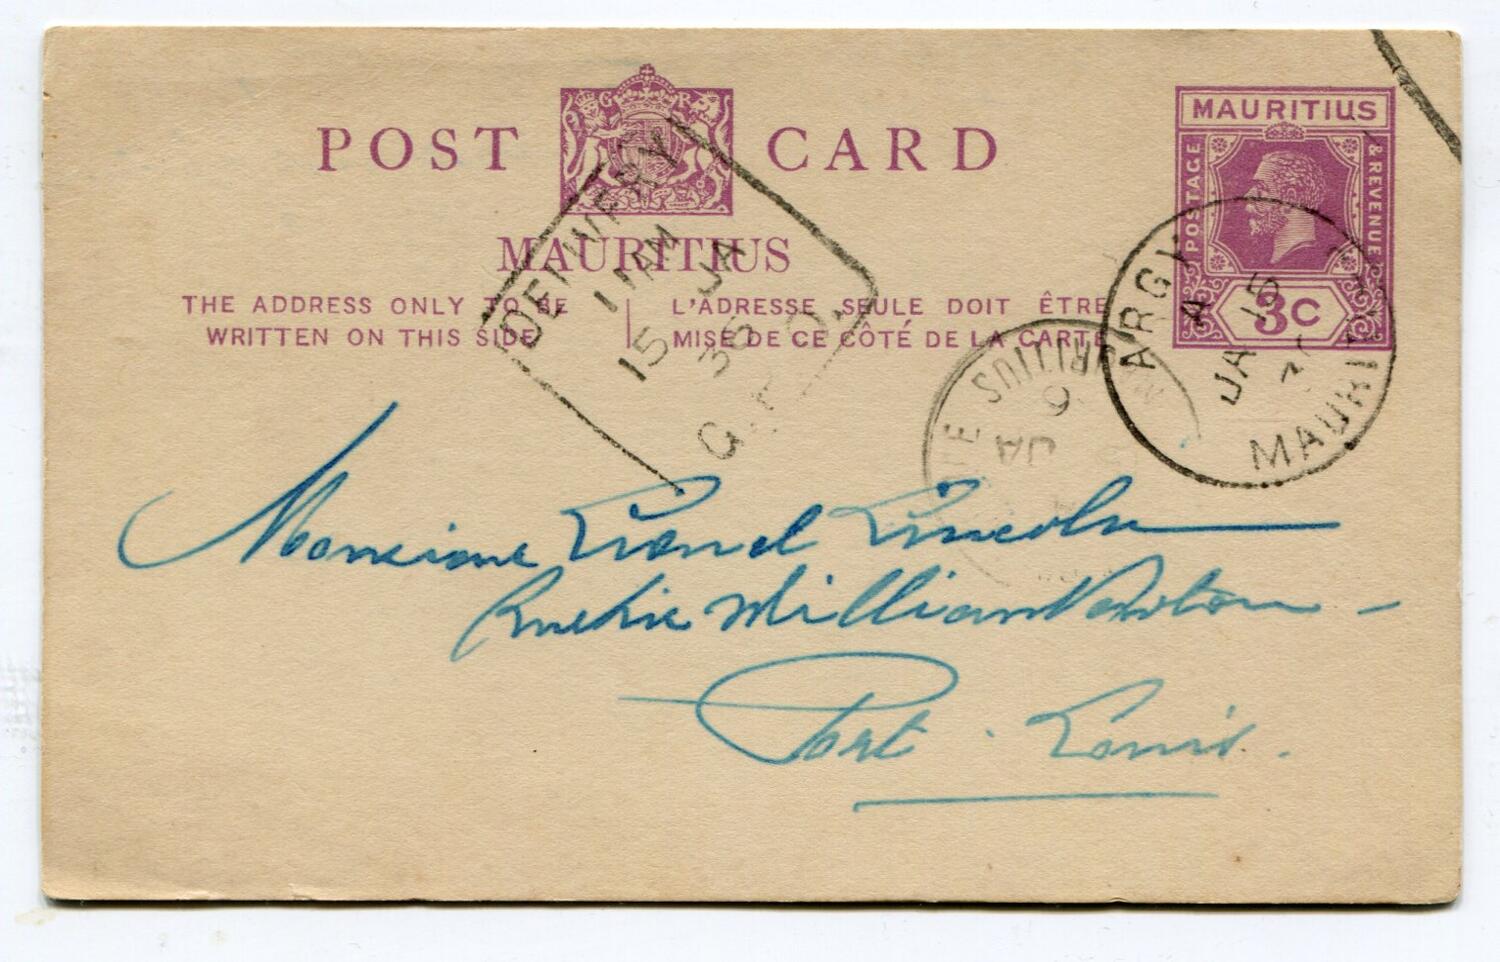 POST CARD
G R
MAURITIUS
THE ADDRESS ONLY TO BE
WRITTEN ON THIS SIDE
L'ADRESSE SEULE DOIT ÊTRE
MISE DE CE CÔTÉ DE LA CARTE
MAURITIUS
POSTAGE
& REVENUE
3C
DELIVERY
11AM
15 JA
36
G.P.O.
ARGY
A
JA 15
MAURI
RITIUS
JA
Lionel Lincoln
William Newton
Port Louis.